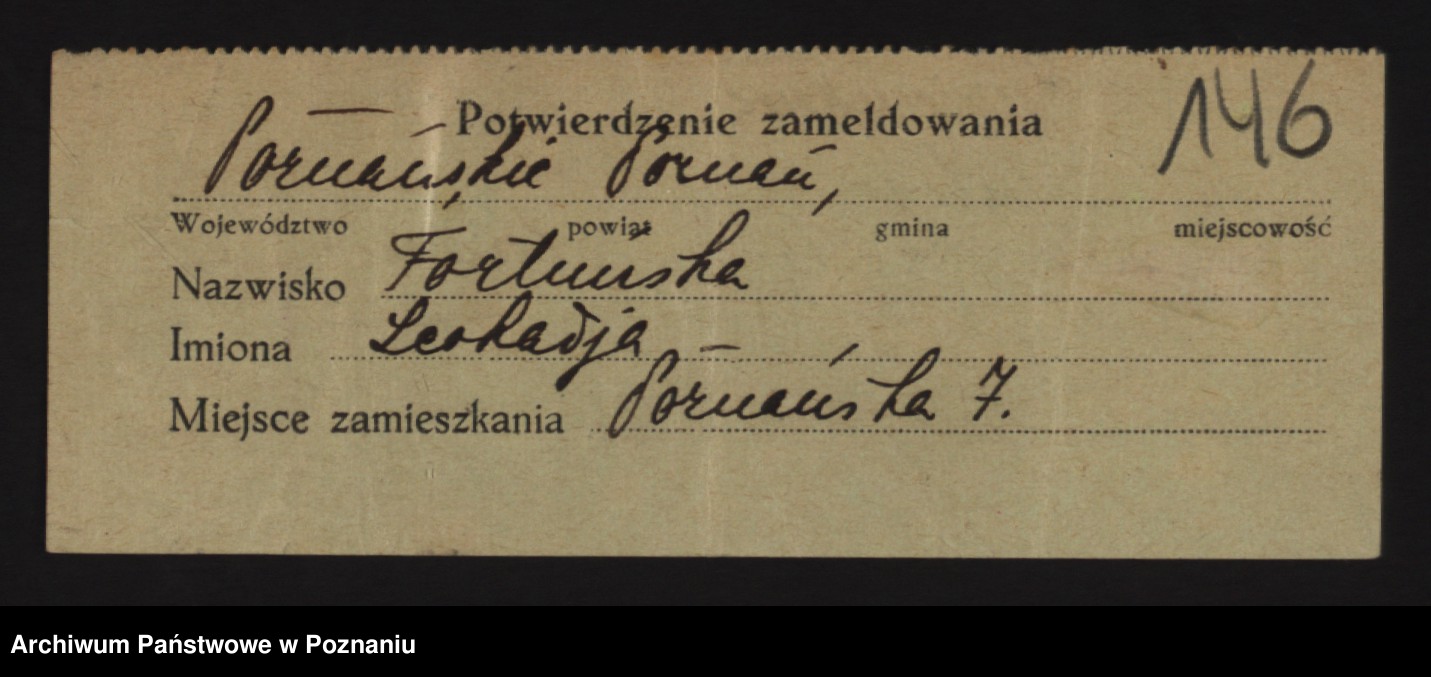 146
Potwierdzenie zameldowania
Poznańskie Poznań,
Województwo powiat gmina miejscowość
Nazwisko Fortuńska
Imiona Leokadja –
Miejsce zamieszkania Poznańska 7.
Archiwum Państwowe w Poznaniu